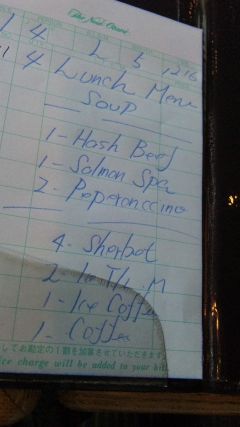 1 4 1 5 1216
4 Lunch Menu
Soup
1- Hash Beef
1- Salmon Spa
2- Peperonccino
4- Sherbot
2- Ice Th. M
1- Ice Coffee
1- Coffee
してお勘定の1割を加算させていただきます
ice charge will be added to your bill